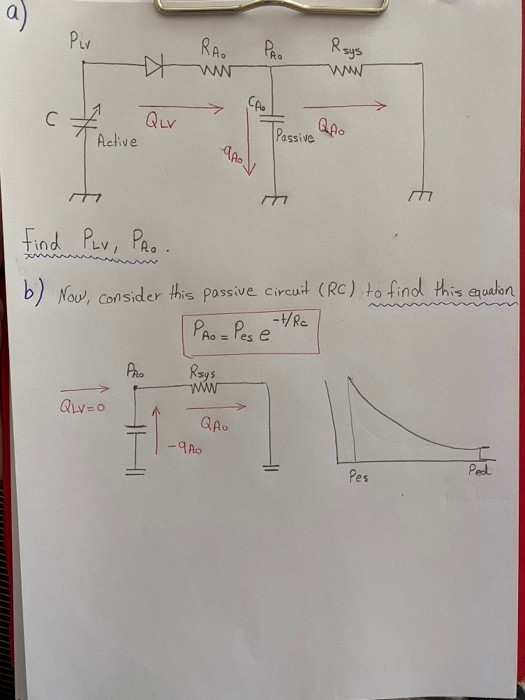 a)
PLV
RAo
PAo
Rsys
C
Active
QLV
CAo
Passive
qAo
QAo
Find PLV, PAo.
b) Now, consider this passive circuit (RC), to find this equation
PAo = Pes e^-t/Rc
PAo
Rsys
QLV=0
QAo
-qAo
Pes
Ped